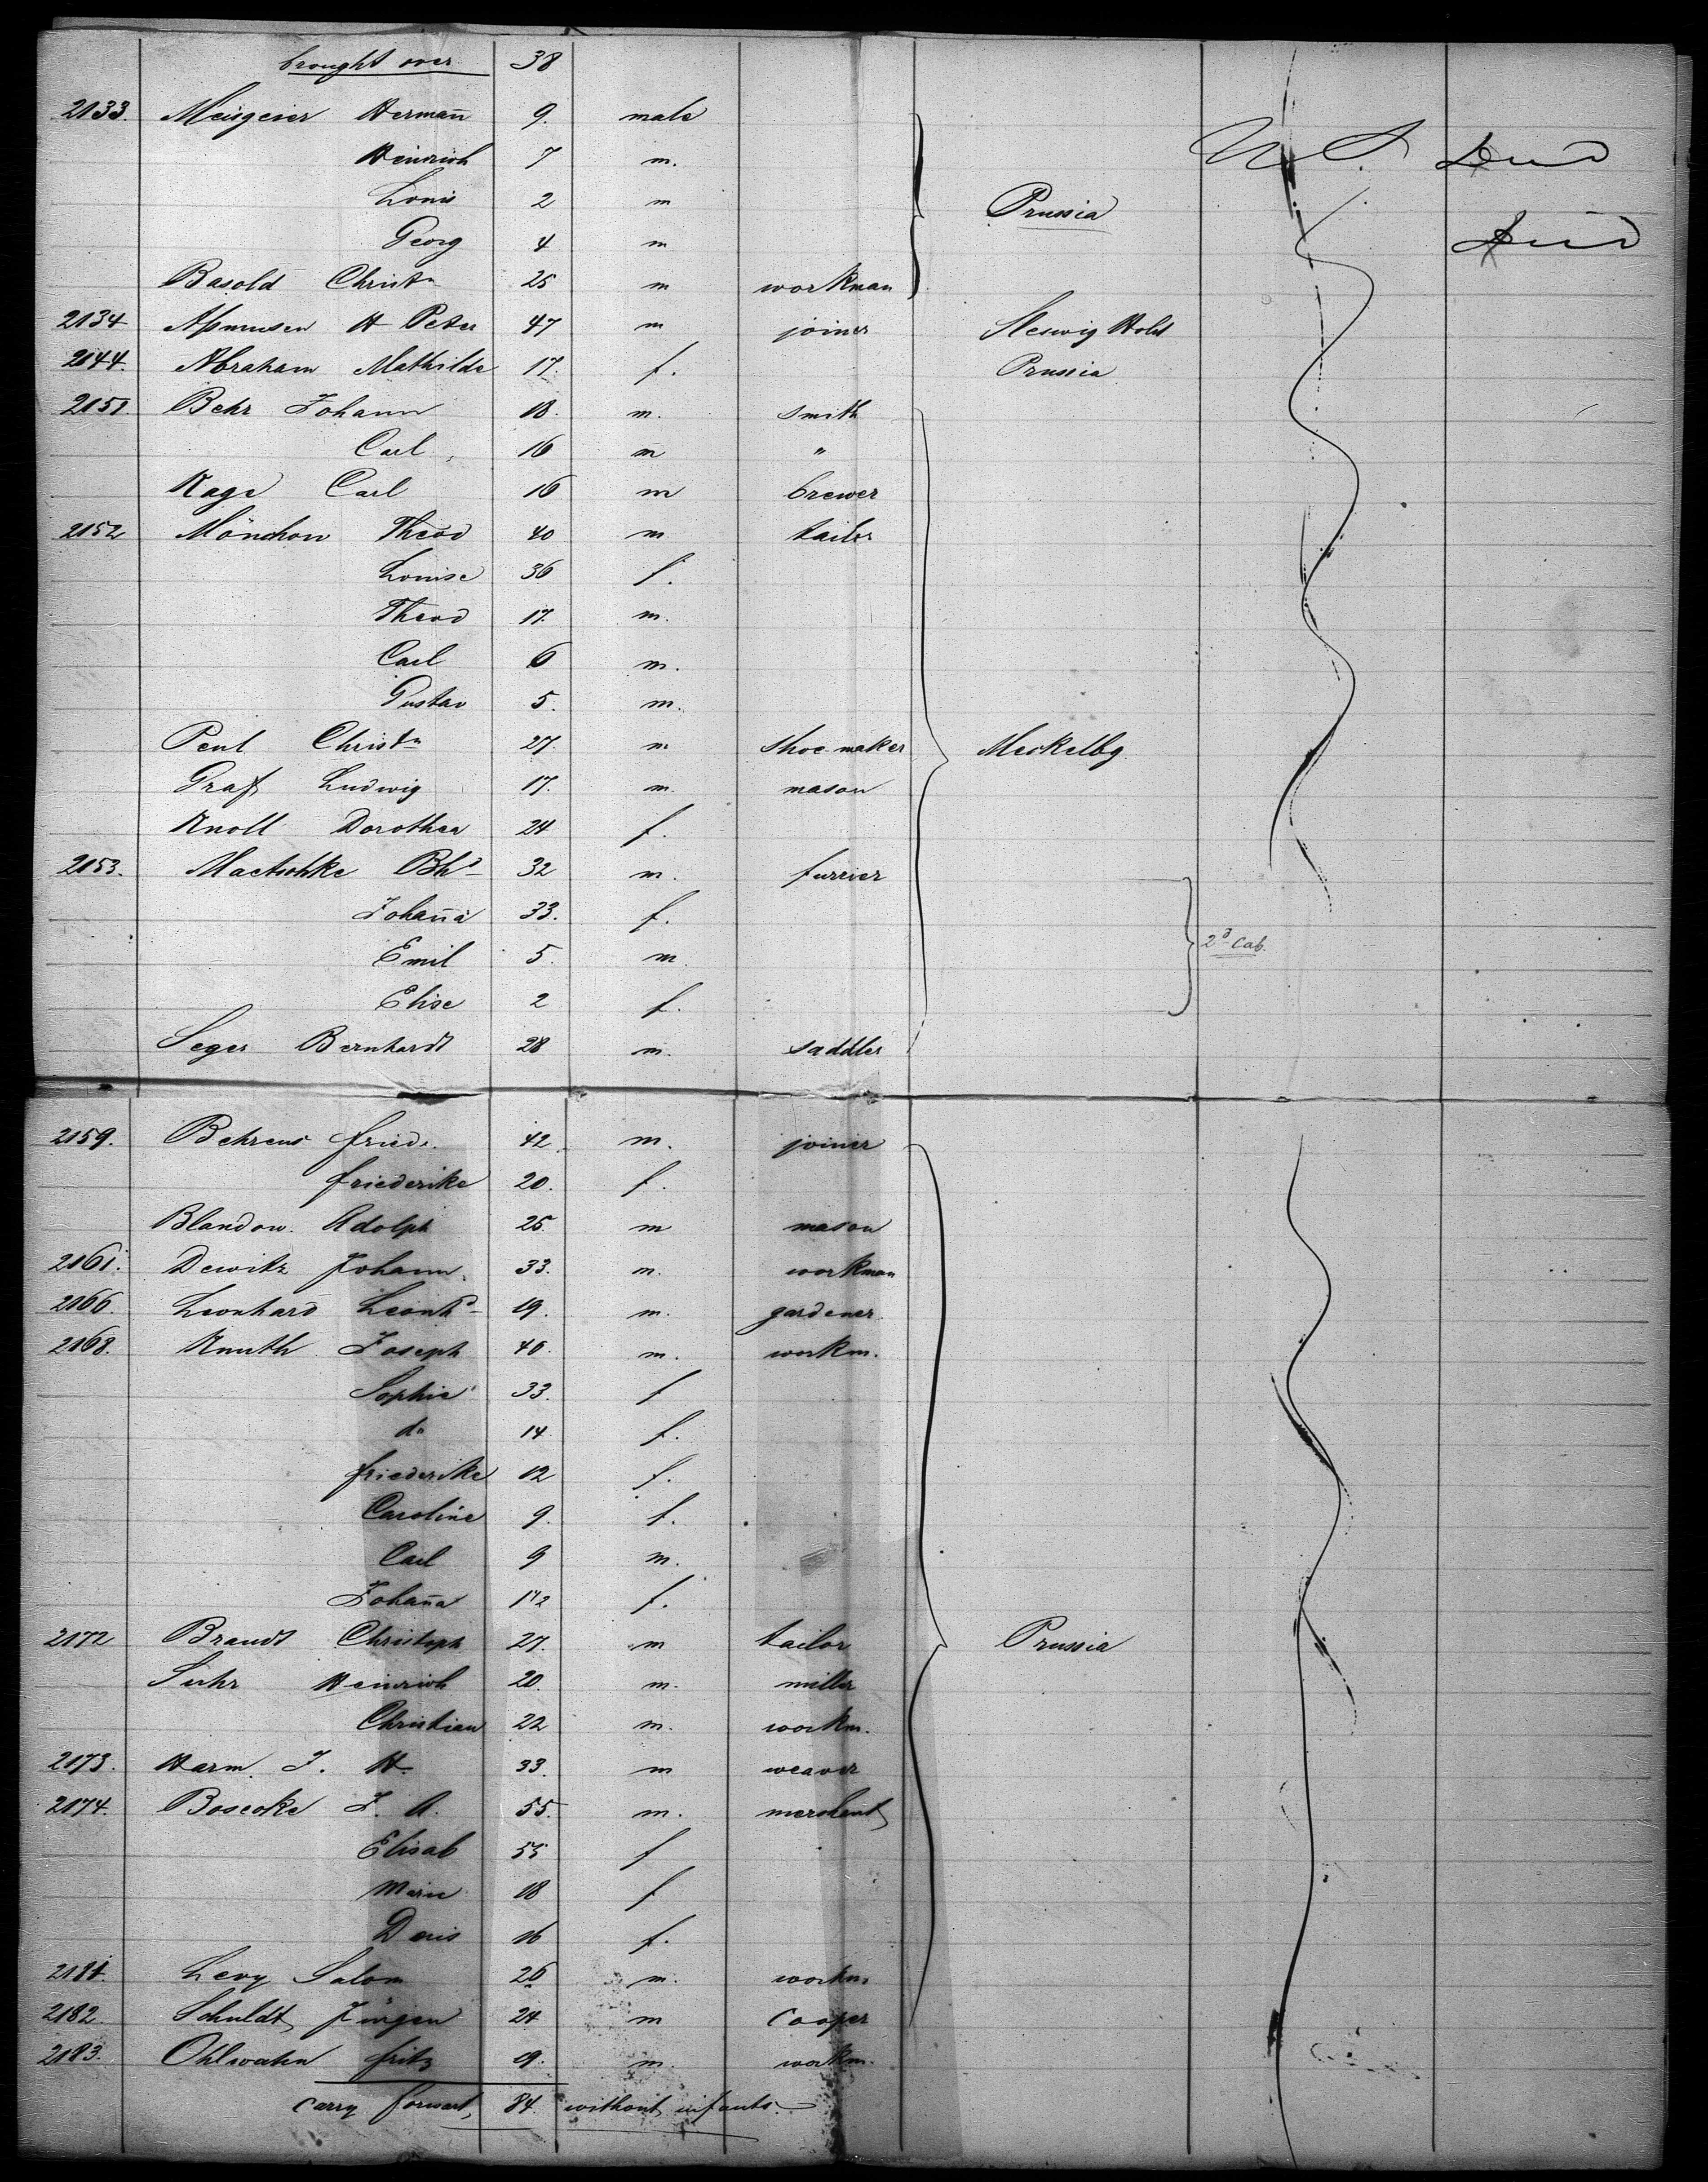 brought over 38
2133. Meisgeier Hermañ 9. male
Heinrich 7 m. U. S. Died
Louis 2 m Prussia
Georg 4 m Died
Basold Christn 25 m workman
2134 Assmusen H Peter 47 m joiner Sleswig Holst
2144. Abraham Mathilde 17. f. Prussia
2151. Behr Johann 18. m. smith
Carl 16 m "
Kage Carl 16 m brewer
2152 Mönchow Theod 40 m tailor
Louise 36 f.
Theod 17. m.
Carl 6 m.
Gustav 5. m.
Pent Christn 27. m shoe maker Meckelbg.
Graf Ludwig 17. m. mason
Knoll Dorothea 24 f.
2153. Maetschke Bhd 32 m. furrier
Johañà 33. f.
Emil 5. m. 2d Cab.
Elise 2 f.
Seger Bernhardt 28 m. saddler
2159. Behrens Friedr. 42 m. joiner
Friederike 20. f.
Blandow. Adolph 25. m mason
2161. Dewitz Johann. 33. m. workman
2166. Leonhard Leonhd 19. m. gardener.
2168. Knuth Joseph 40. m. workm.
Sophie 33. f
do 14 f.
Friederike 12 f.
Caroline 9. f.
Carl 9 m.
Johaña 1 1/2 f.
2172 Brandt Christoph 27. m tailor Prussia
Suhr Heinrich 20. m. miller
Christian 22 m. workm.
2173. Harm. J. H. 33. m weaver
2174. Boscoke J. A. 55. m. merchent
Elisab 55 f
Marie 18 f
Doris 16 f.
2181. Levy Salom 26 m. workm.
2182. Schuldt Jürgen 24 m Cooper
2183. Ohlwaten Fritz 19. m. workm.
carry forwart, 84. without infants.